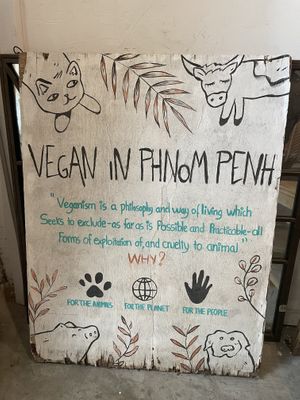 VEGAN IN PHNOM PENH
"Veganism is a philosophy and way of living which
Seeks to exclude-as far as is Possible and Practicable-all
Forms of exploitation of, and cruelty to animal"
WHY?
FOR THE ANIMALS FOR THE PLANET FOR THE PEOPLE